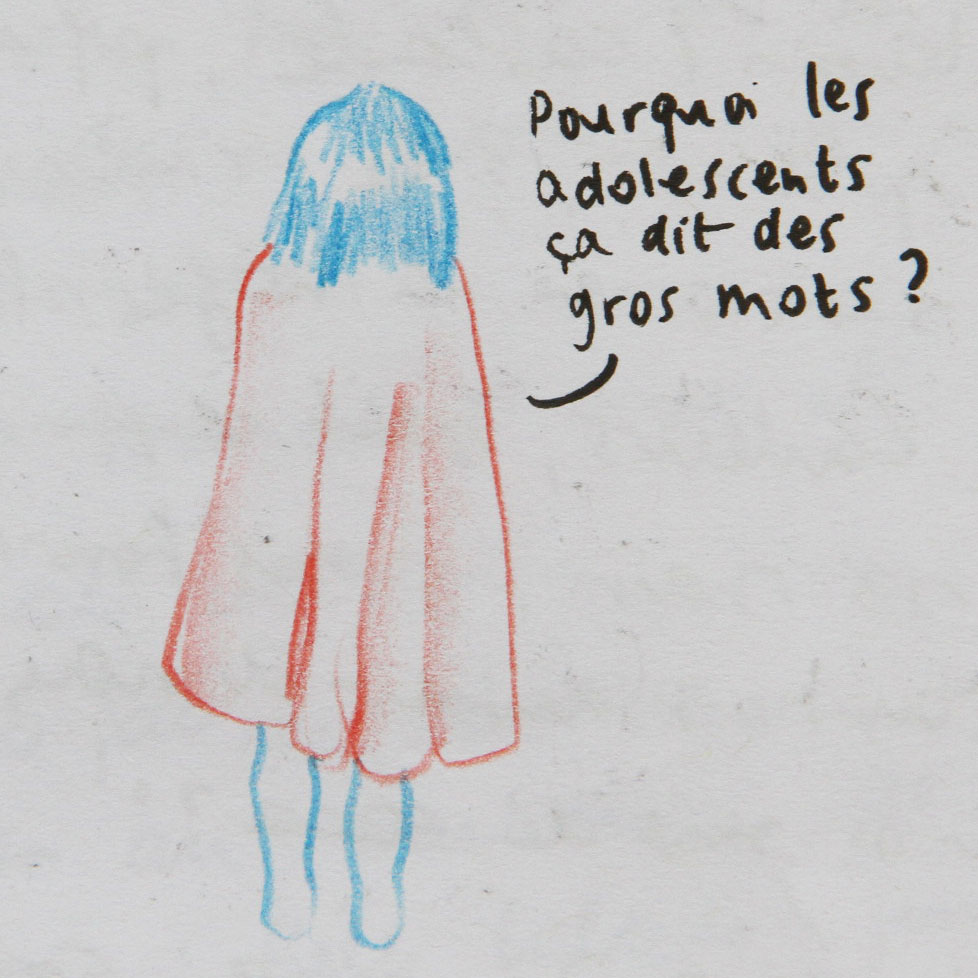 Pourquoi les
adolescents
ça dit des
gros mots ?